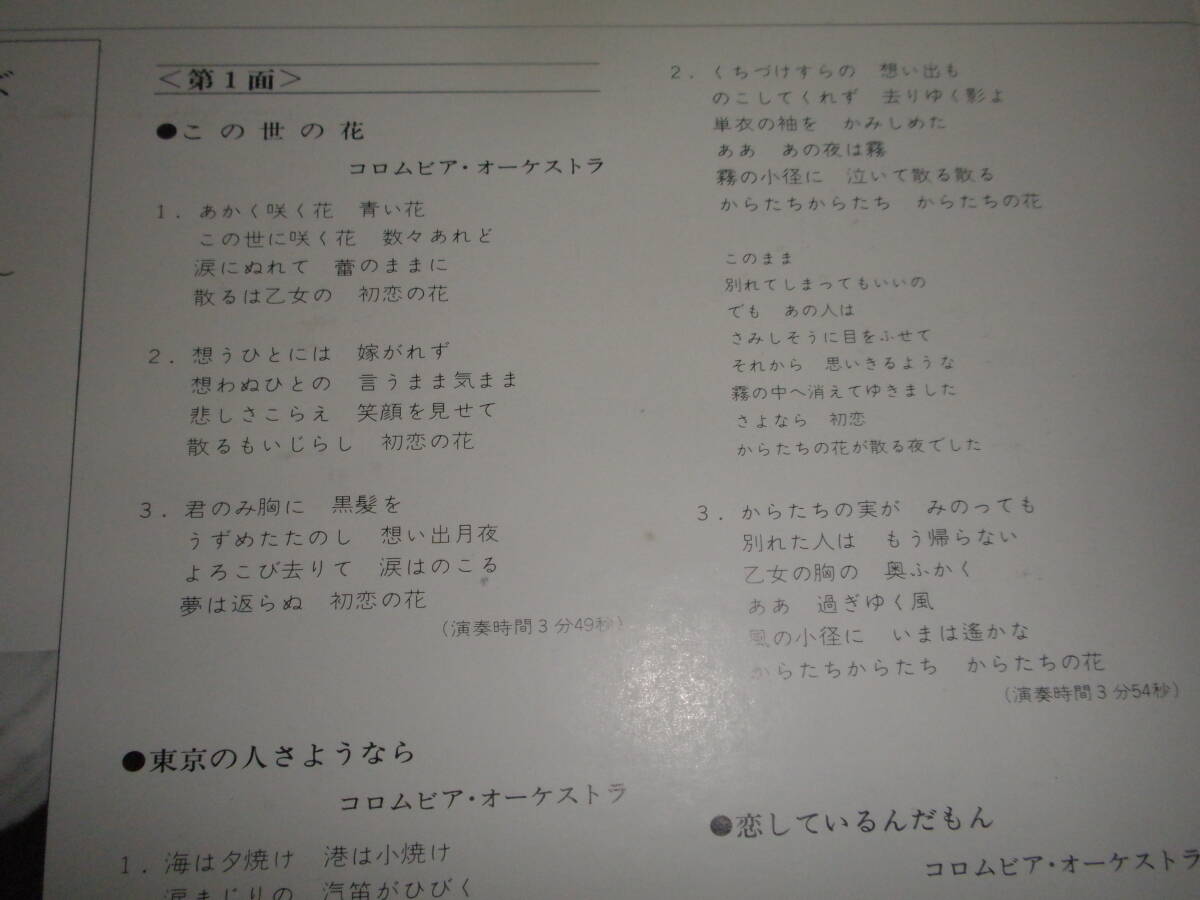 <第1面>
●この世の花
コロムビア・オーケストラ
1．あかく咲く花　青い花
この世に咲く花　数々あれど
涙にぬれて　蕾のままに
散るは乙女の　初恋の花
2．想うひとには　嫁がれず
想わぬひとの　言うまま気まま
悲しさこらえ　笑顔を見せて
散るもいじらし　初恋の花
3．君のみ胸に　黒髪を
うずめたたのし　想い出月夜
よろこび去りて　涙はのこる
夢は返らぬ　初恋の花
（演奏時間3分49秒）
●東京の人さようなら
コロムビア・オーケストラ
1．海は夕焼け　港は小焼け
涙まじりの　汽笛がひびく
2．くちづけすらの　想い出も
のこしてくれず　去りゆく影よ
単衣の袖を　かみしめた
ああ　あの夜は霧
霧の小径に　泣いて散る散る
からたちからたち　からたちの花
このまま
別れてしまってもいいの
でも　あの人は
さみしそうに目をふせて
それから　思いきるような
霧の中へ消えてゆきました
さよなら　初恋
からたちの花が散る夜でした
3．からたちの実が　みのっても
別れた人は　もう帰らない
乙女の胸の　奥ふかく
ああ　過ぎゆく風
風の小径に　いまは遙かな
からたちからたち　からたちの花
（演奏時間3分54秒）
●恋しているんだもん
コロムビア・オーケストラ